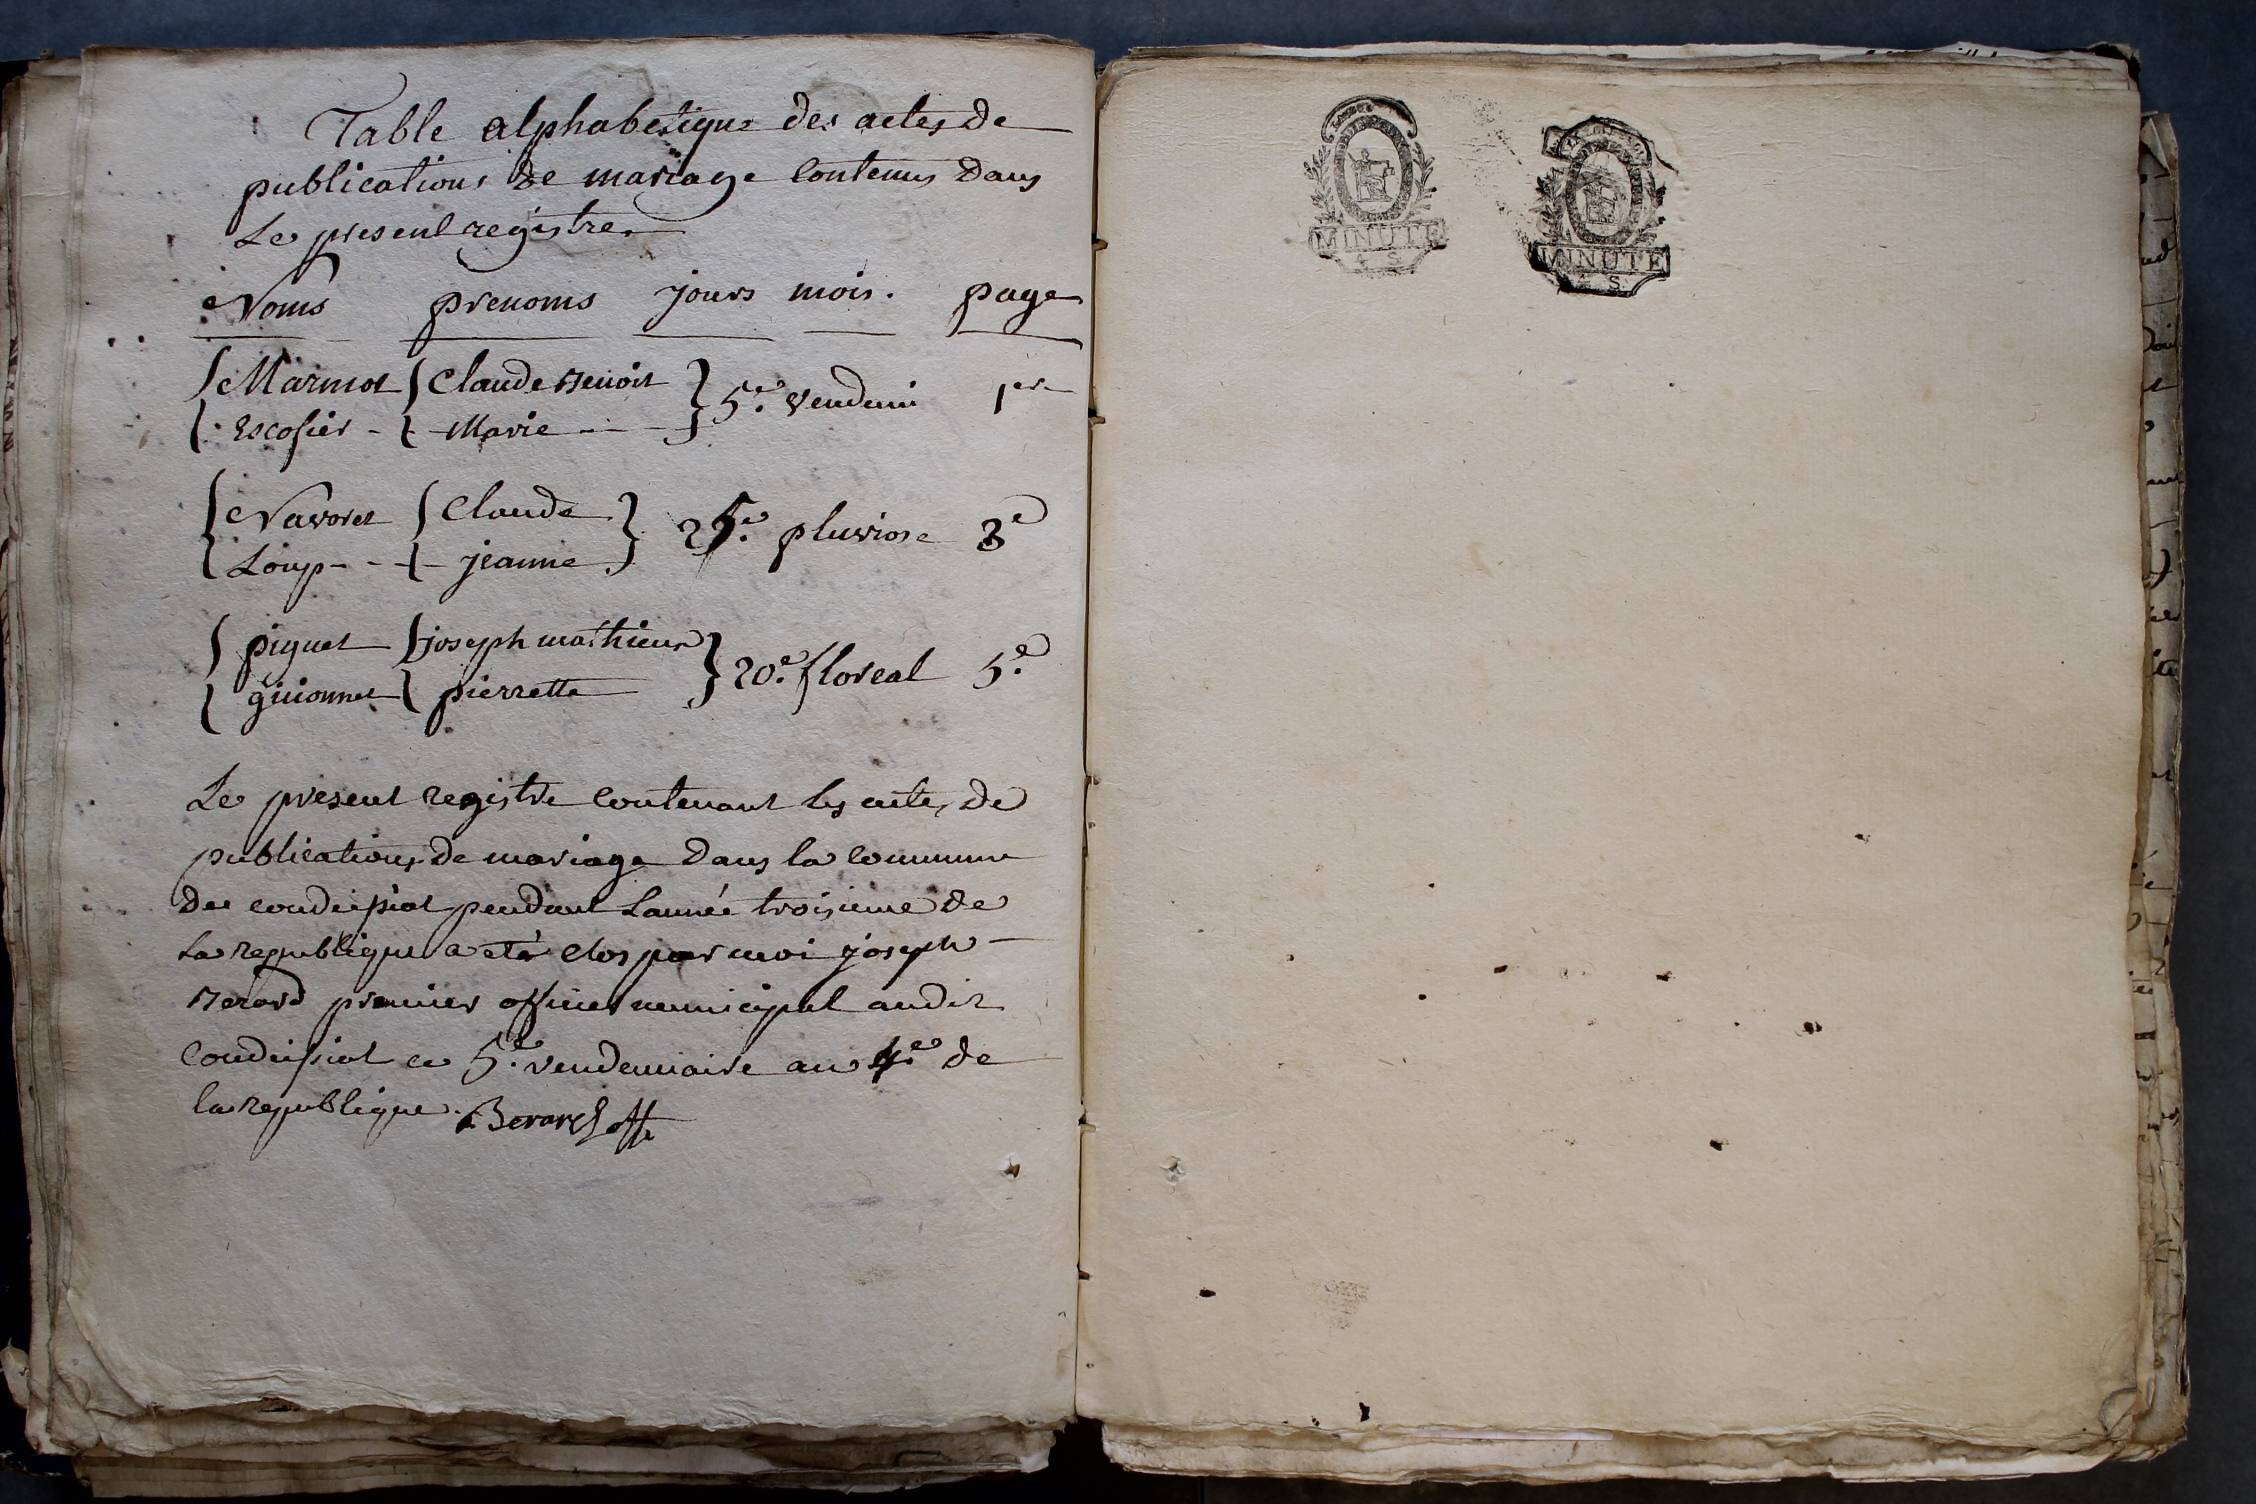 Table alphabetique des actes de
publications de mariage contenus dans
Le present registre.
Noms prenoms jours mois. page
Marmot Claude Benoit
5e. vendemi 1er
Escofier - Marie
Navoret Claude
25e. pluviose 3e
Loup - - jeanne
piquet joseph mathieu
20e. floreal 5e.
guionnet pierrette
Le present registre contenant les actes de
publications de mariage dans la commune
de condeissiat pendant Lannée troisieme de
La republique a eté clos par moi joseph
Berard premier officier municipal audit
Condeissiat ce 5e. vendemiaire an 4e. de
la republique. Berard offr
MINUTE
4 S
MINUTE
4 S.